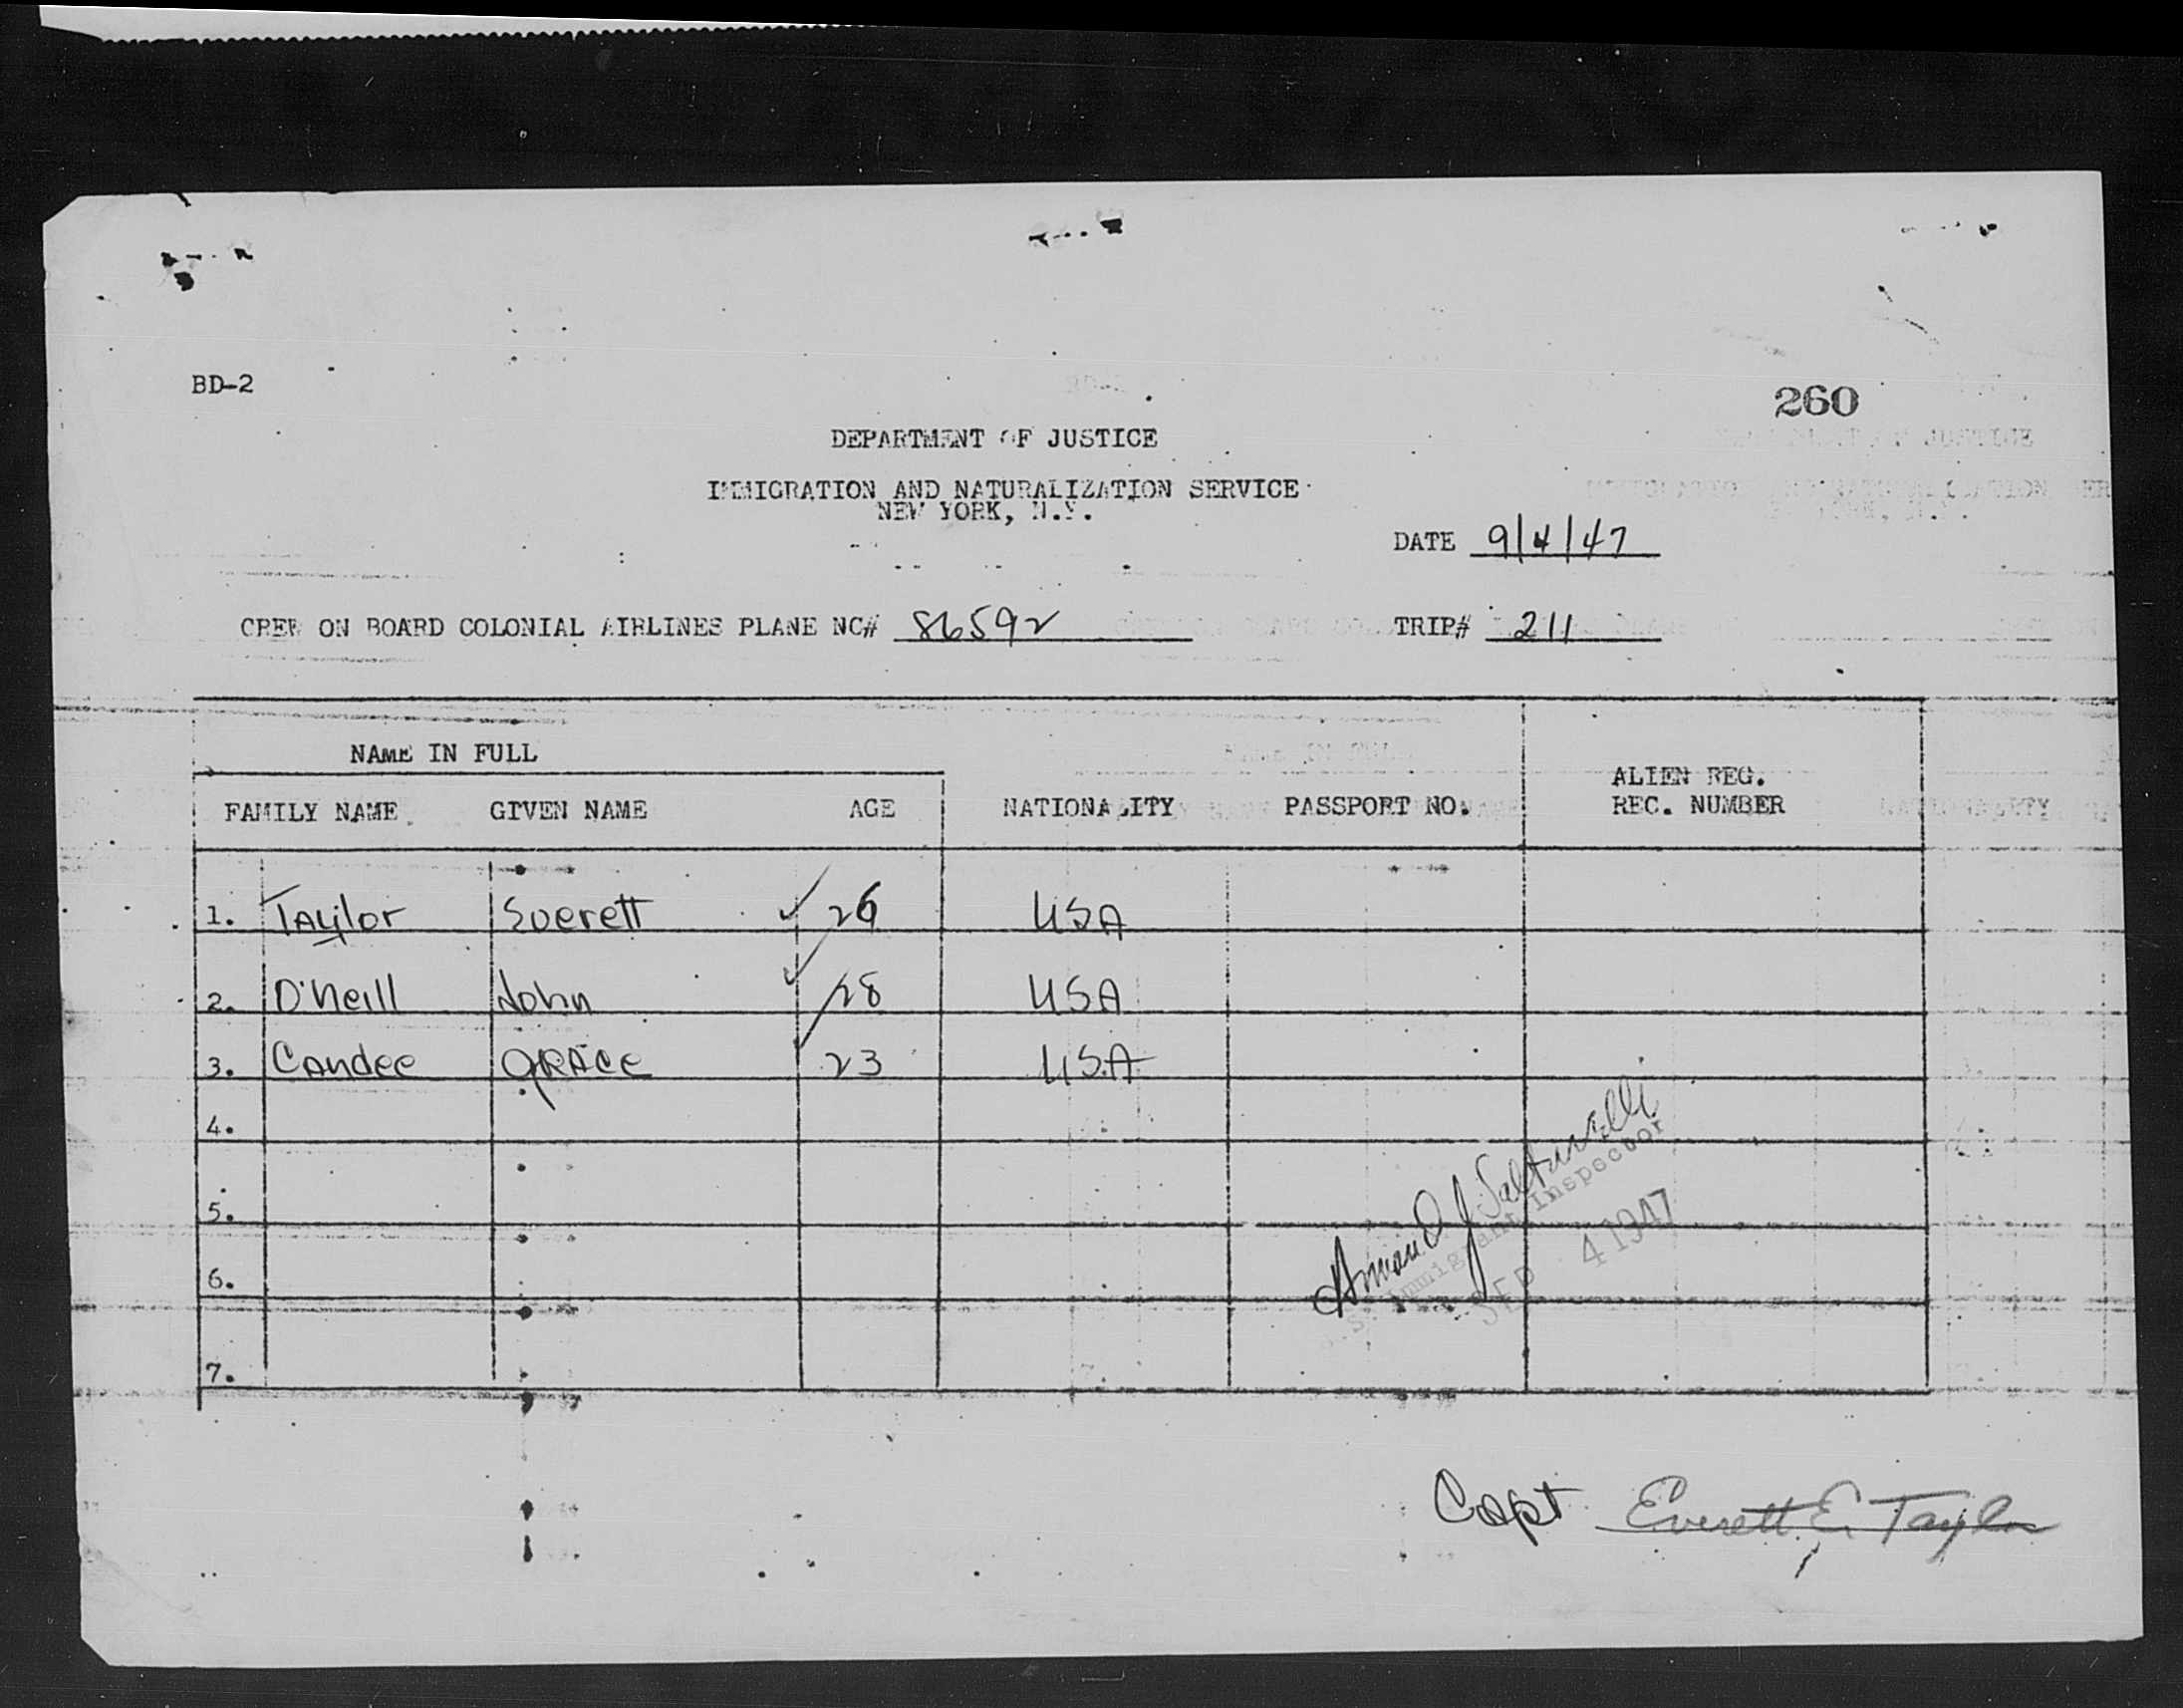 BD-2
260
DEPARTMENT OF JUSTICE
IMMIGRATION AND NATURALIZATION SERVICE
NEW YORK, N.Y.
DATE 9/4/47
CREW ON BOARD COLONIAL AIRLINES PLANE NC# 86592 TRIP# 211
NAME IN FULL
ALIEN REG.
FAMILY NAME GIVEN NAME AGE NATIONALITY PASSPORT NO. REC. NUMBER
1. Taylor Everett 26 USA
2. O'Neill John 28 USA
3. Candee GRACE 23 USA
4.
5.
6.
7.
Armand J.
Immigrant Inspector
SEP 4 1947
Capt Everett E. Taylor